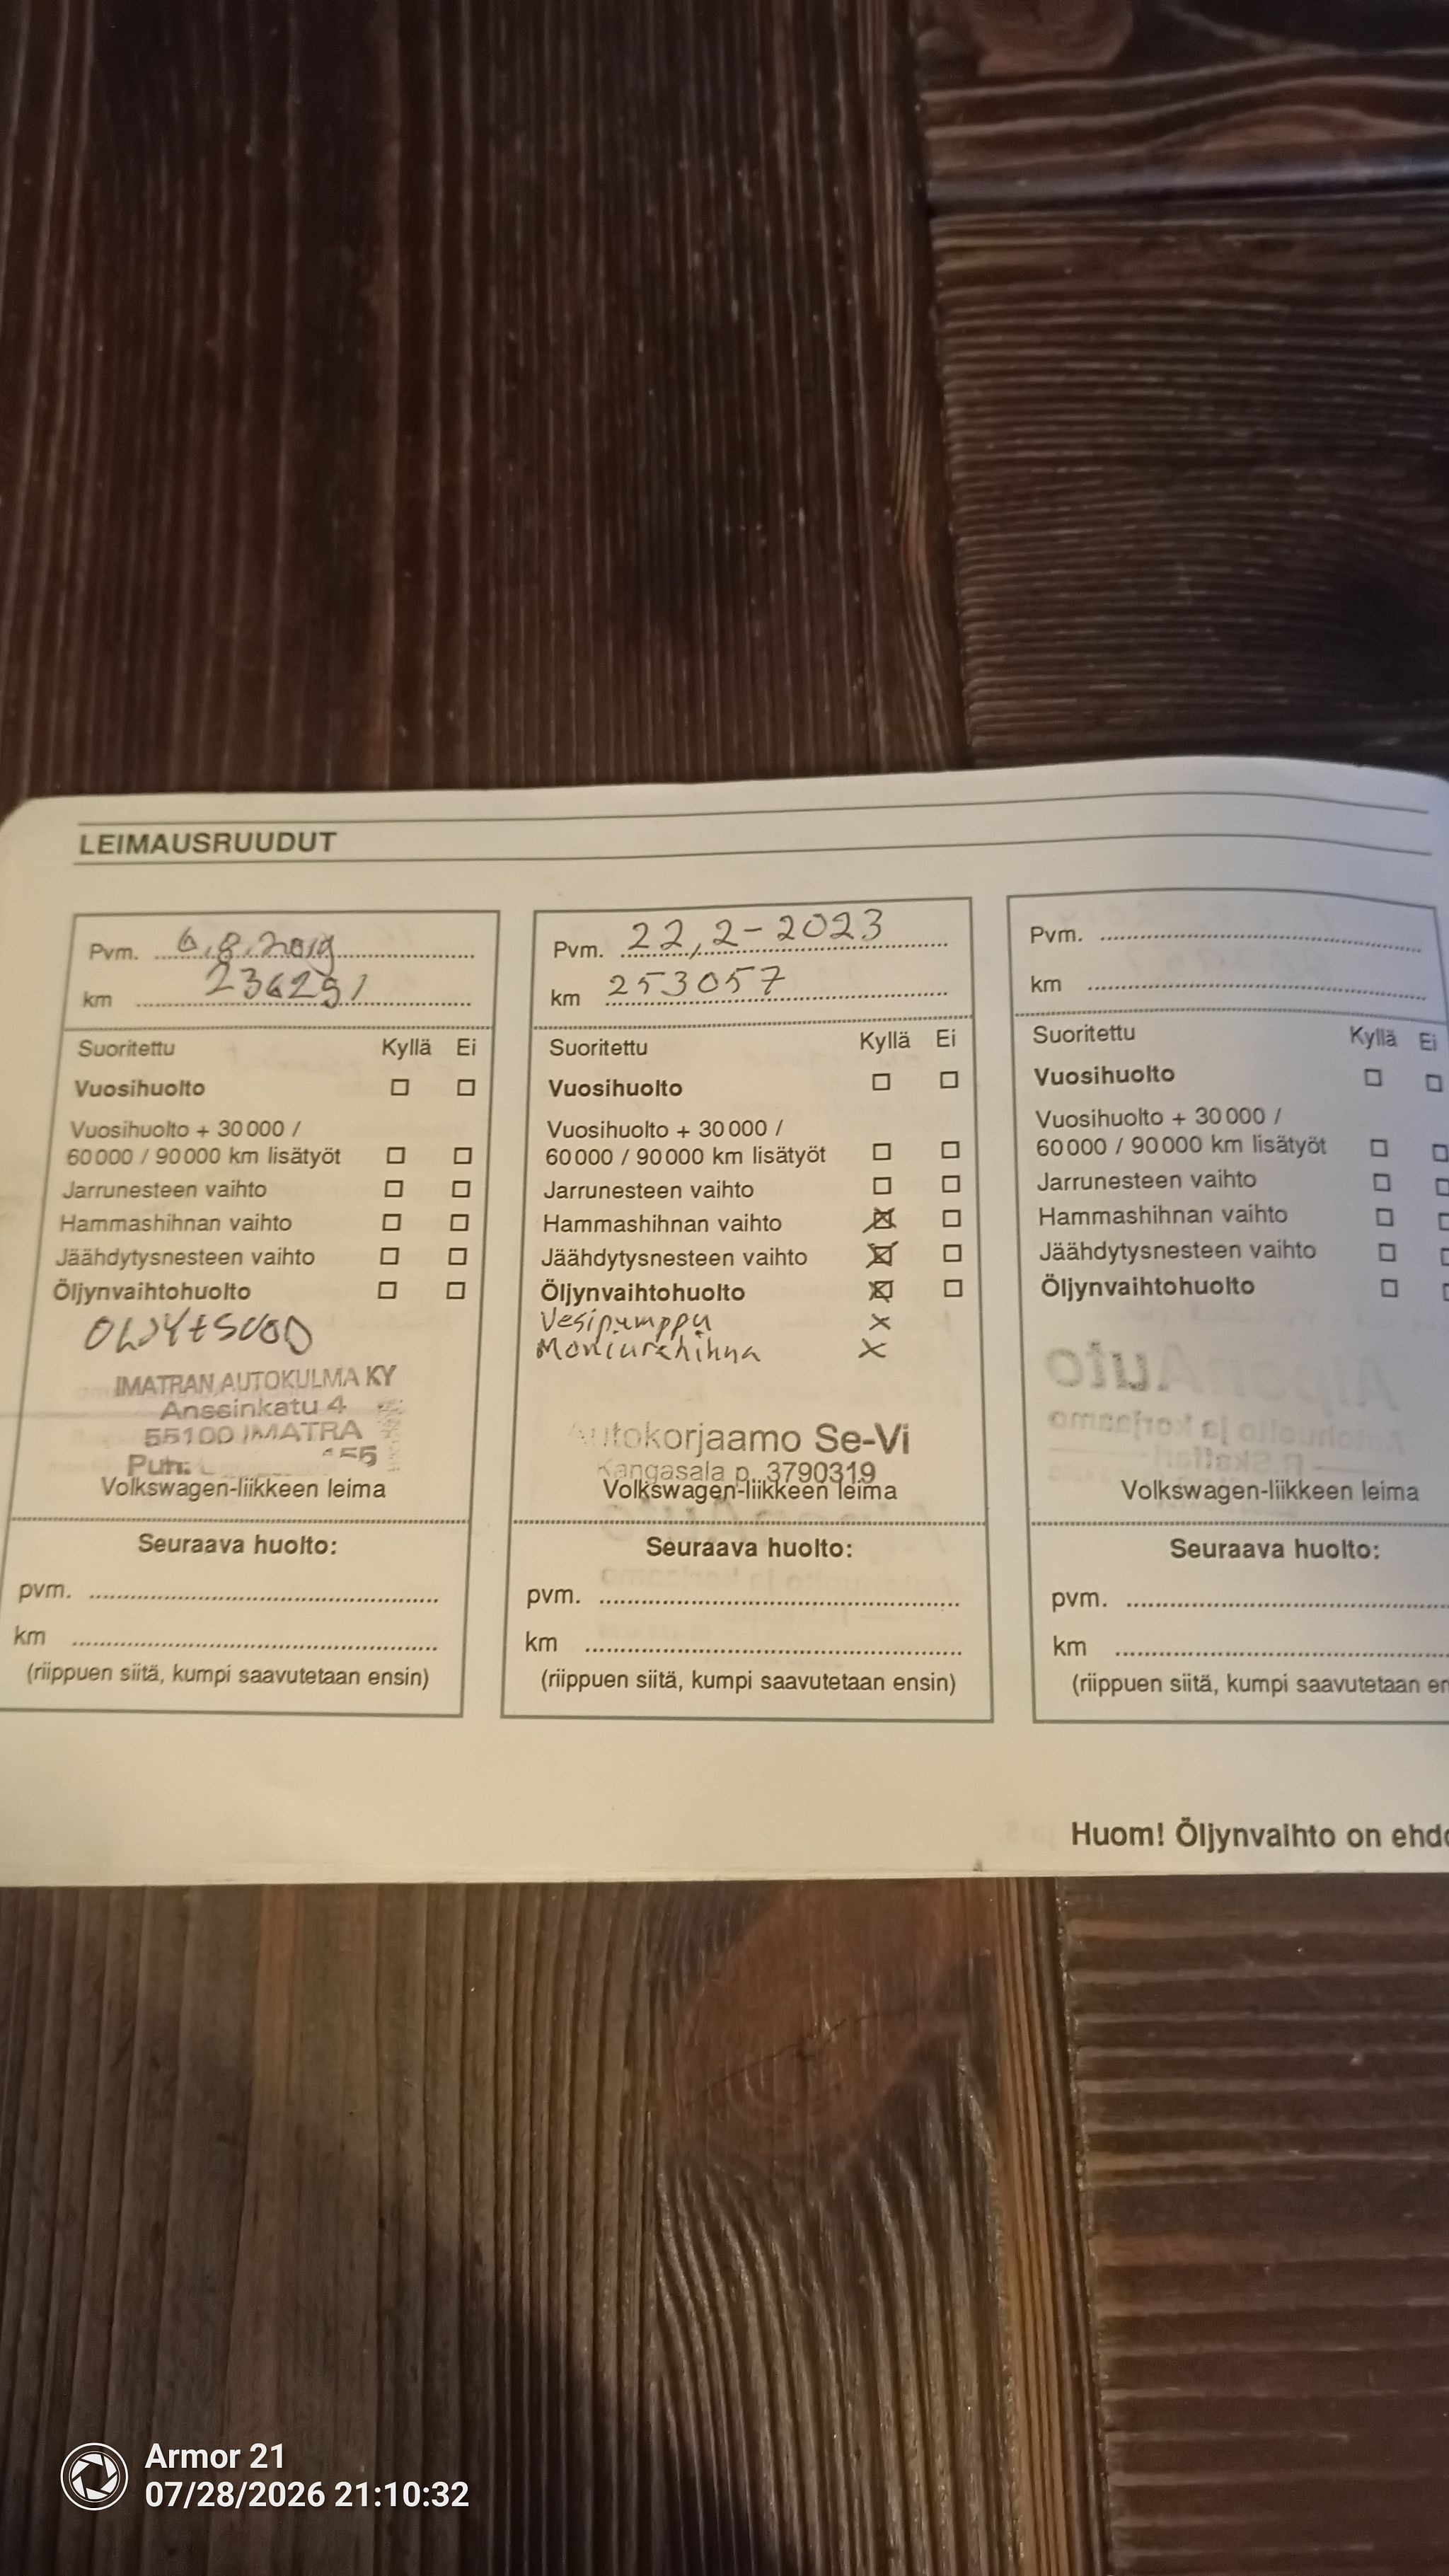 LEIMAUSRUUDUT
Pvm. 6.8.2019
km 236251
Suoritettu Kyllä Ei
Vuosihuolto
Vuosihuolto + 30 000 /
60 000 / 90 000 km lisätyöt
Jarrunesteen vaihto
Hammashihnan vaihto
Jäähdytysnesteen vaihto
Öljynvaihtohuolto
IMATRAN AUTOKULMA KY
Anssinkatu 4
55100 IMATRA
Puh.
Volkswagen-liikkeen leima
Seuraava huolto:
pvm.
km
(riippuen siitä, kumpi saavutetaan ensin)
Pvm. 22,2-2023
km 253057
Suoritettu Kyllä Ei
Vuosihuolto
Vuosihuolto + 30 000 /
60 000 / 90 000 km lisätyöt
Jarrunesteen vaihto
Hammashihnan vaihto
Jäähdytysnesteen vaihto
Öljynvaihtohuolto
Vesipumppu x
Moniurahihna x
Autokorjaamo Se-Vi
Kangasala p. 3790319
Volkswagen-liikkeen leima
Seuraava huolto:
pvm.
km
(riippuen siitä, kumpi saavutetaan ensin)
Pvm.
km
Suoritettu Kyllä Ei
Vuosihuolto
Vuosihuolto + 30 000 /
60 000 / 90 000 km lisätyöt
Jarrunesteen vaihto
Hammashihnan vaihto
Jäähdytysnesteen vaihto
Öljynvaihtohuolto
Volkswagen-liikkeen leima
Seuraava huolto:
pvm.
km
(riippuen siitä, kumpi saavutetaan en
Huom! Öljynvaihto on ehdo
Armor 21
07/28/2026 21:10:32